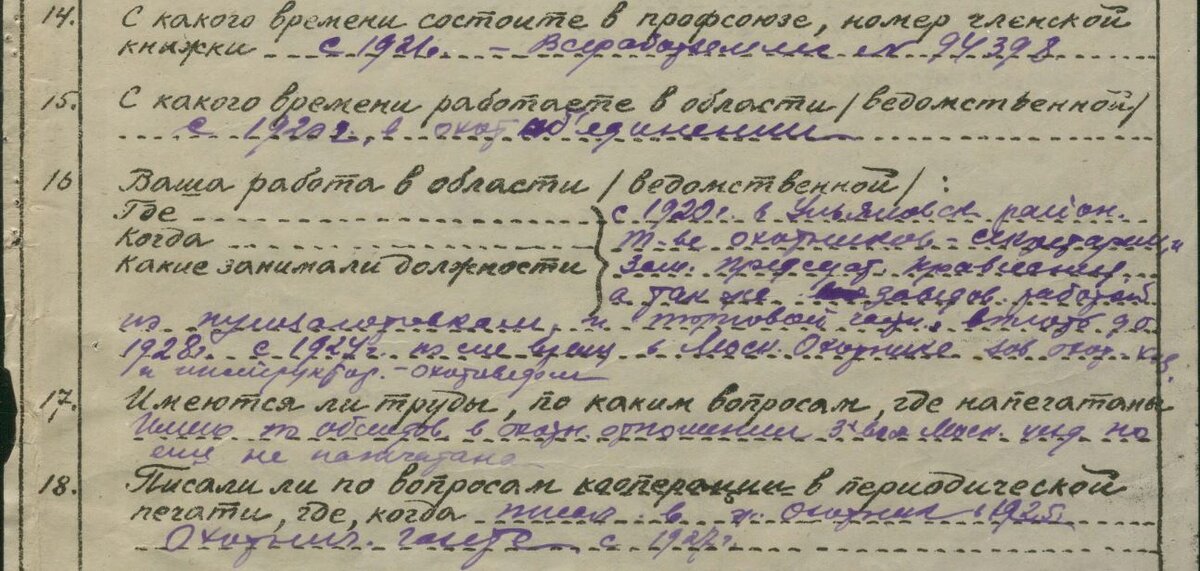 14. С какого времени состоите в профсоюзе, номер членской
книжки с 1921г. – Всеработземлес № 94398
15. С какого времени работаете в области /ведомственной/
с 1920г. в охот об'единении
16 Ваша работа в области /ведомственной/:
Где с 1920г. в Ульяновск район.
когда т-ве охотников – секретарем, и
какие занимали должности зам. председат. правления
а также заведов. работой
по пушзаготовкам и торговой части, вплоть до
1928г. с 1927г. по сие время в Моск. Охотнике зав охот. хоз.
и инструктор. – охотоведом
17. Имеются ли труды, по каким вопросам, где напечатаны
Имею по обследов в охотн. отношении 3х вол Моск. уезд но
еще не напечатано
18. Писали ли по вопросам кооперации в периодической
печати, где, когда писал в ж. Охотник 1925
Охотнич. газете с 1927г.